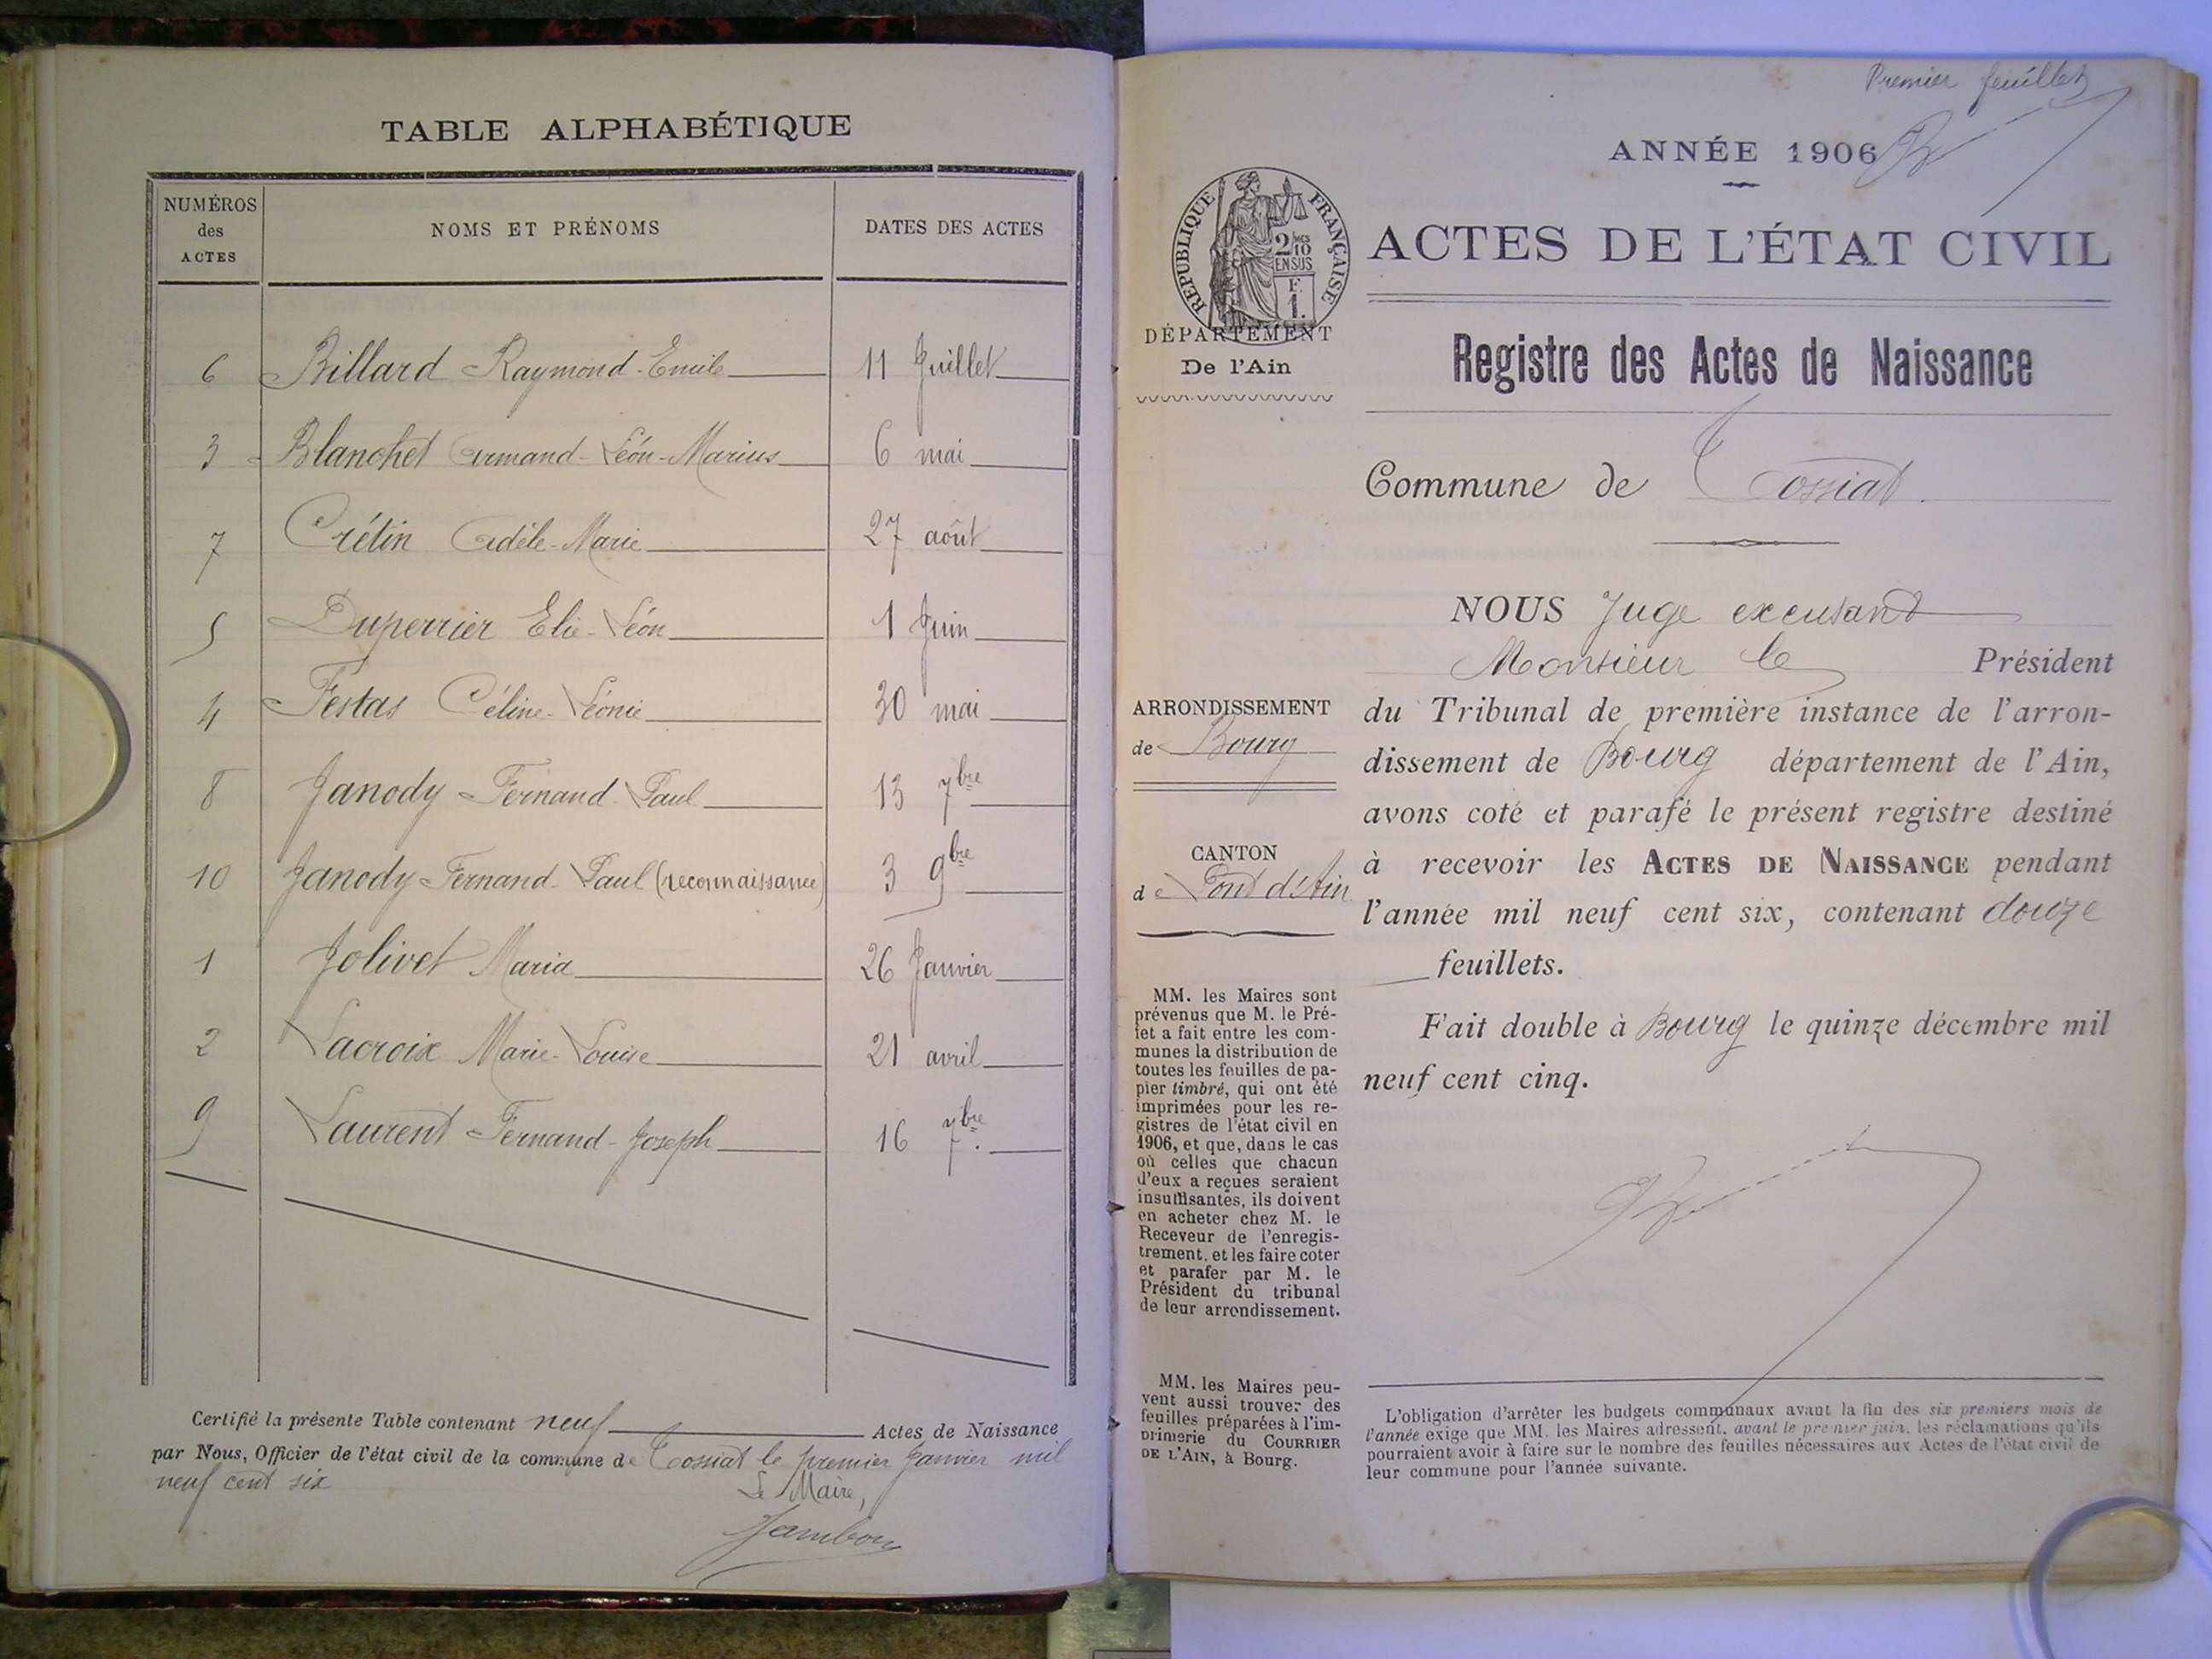 TABLE ALPHABÉTIQUE
NUMÉROS des ACTES NOMS ET PRÉNOMS DATES DES ACTES
6 Billard Raymond-Emile 11 Juillet
3 Blanchet Armand-Léon-Marius 6 mai
7 Crétin Adèle-Marie 27 août
5 Duperrier Elie-Léon 1 Juin
4 Festas Céline-Léonie 30 mai
8 Janody Fernand-Paul 13 7bre
10 Janody Fernand-Paul (reconnaissance) 3 9bre
1 Jolivet Maria 26 Janvier
2 Lacroix Marie-Louise 21 avril
9 Laurent Fernand-Joseph 16 7bre.
Certifié la présente Table contenant neuf Actes de Naissance
par Nous, Officier de l'état civil de la commune de Tossiat le premier Janvier mil
neuf cent six
Le Maire,
Jambon
Premier feuillet
ANNÉE 1906
RÉPUBLIQUE FRANÇAISE
2/10
EN SUS
F.
1.
ACTES DE L'ÉTAT CIVIL
DÉPARTEMENT
De l'Ain
Registre des Actes de Naissance
Commune de Tossiat.
NOUS Juge excusant
Monsieur le Président
du Tribunal de première instance de l'arron-
dissement de Bourg département de l'Ain,
avons coté et parafé le présent registre destiné
à recevoir les ACTES DE NAISSANCE pendant
l'année mil neuf cent six, contenant douze
feuillets.
Fait double à Bourg le quinze décembre mil
neuf cent cinq.
ARRONDISSEMENT
de Bourg
CANTON
de Pont d'Ain
MM. les Maires sont
prévenus que M. le Pré-
fet a fait entre les com-
munes la distribution de
toutes les feuilles de pa-
pier timbré, qui ont été
imprimées pour les re-
gistres de l'état civil en
1906, et que, dans le cas
où celles que chacun
d'eux a reçues seraient
insuffisantes, ils doivent
en acheter chez M. le
Receveur de l'enregis-
trement, et les faire coter
et parafer par M. le
Président du tribunal
de leur arrondissement.
MM. les Maires peu-
vent aussi trouver des
feuilles préparées à l'im-
primerie du COURRIER
DE L'AIN, à Bourg.
L'obligation d'arrêter les budgets communaux avant la fin des six premiers mois de
l'année exige que MM. les Maires adressent, avant le premier juin, les réclamations qu'ils
pourraient avoir à faire sur le nombre des feuilles nécessaires aux Actes de l'état civil de
leur commune pour l'année suivante.